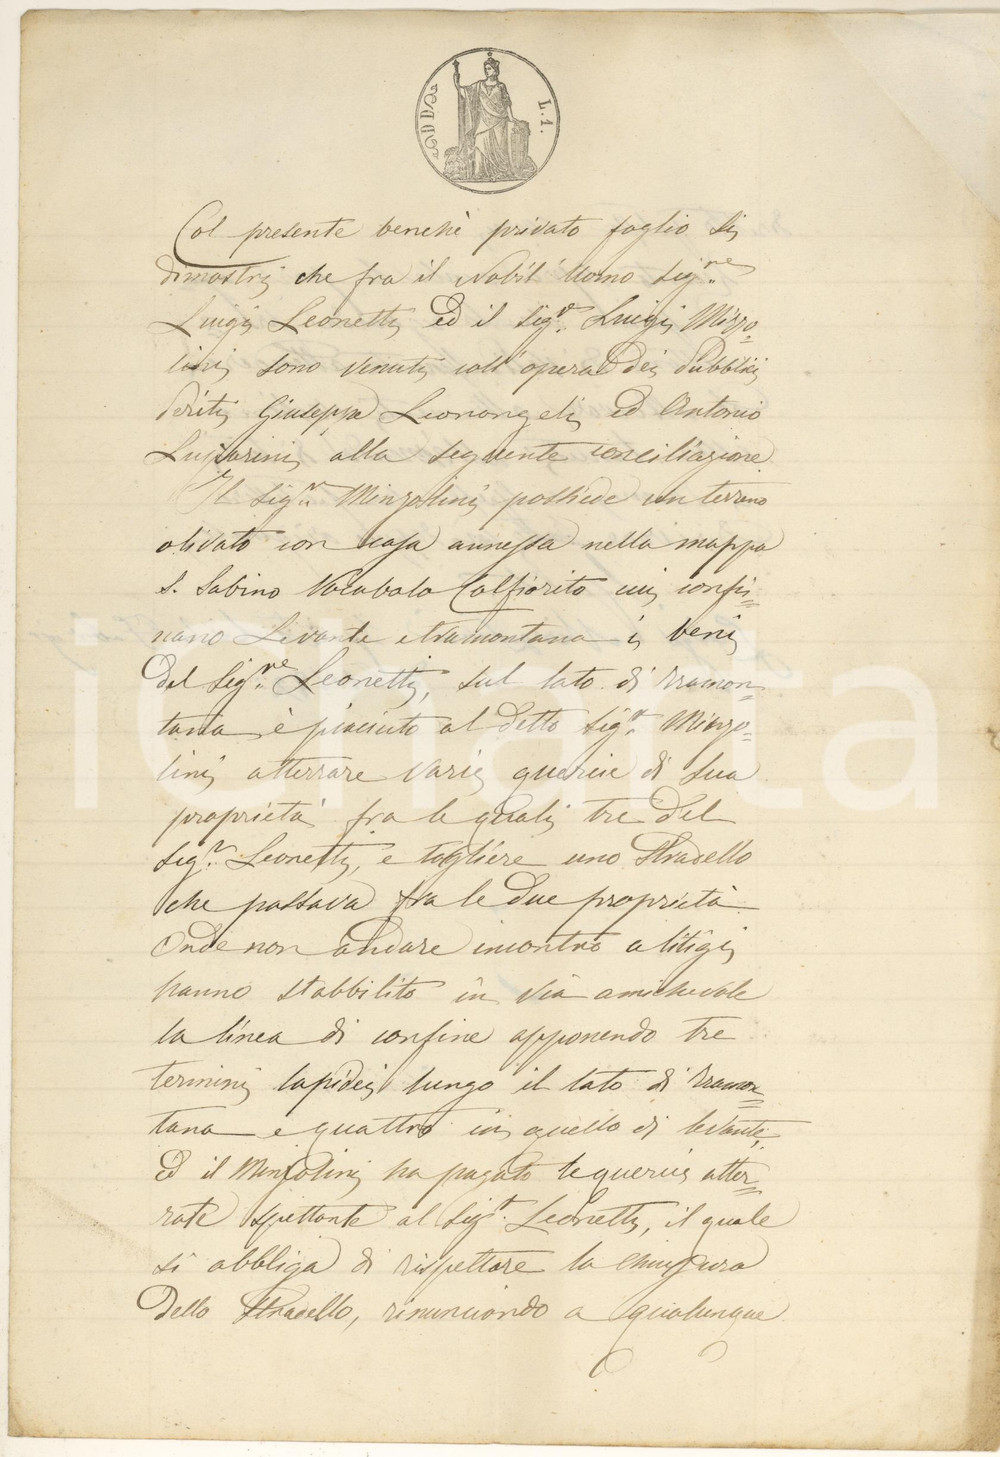 L.1.
Col presente benchè privato foglio si
dimostri che fra il Nobil'Uomo Sig.re
Luigi Leonetti ed il Sig.r Luigi Minzo=
lini sono venuti coll'opera dei Pubblici
Periti Giuseppe Leonangeli ed Antonio
Lusparini alla seguente conciliazione
Il Sig.r Minzolini possiede un terreno
olivato con casa annessa nella mappa
S. Sabino Vocabolo Calfiorito cui confi=
nano Levante e tramontana i beni
del Sig.re Leonetti, sul lato di Tramon=
tana è piaciuto al detto Sig.r Minzo=
lini atterrare varie quercie di sua
proprietà fra le quali tre del
Sig.r Leonetti, e togliere uno Stradello
che passava fra le due proprietà
Onde non andare incontro a litigi
hanno stabbilito in via amichevole
la linea di confine apponendo tre
termini lapidei lungo il lato di Tramon=
tana e quattro in quello di levante,
Ed il Minzolini ha pagato le quercie atter=
rate spettante al Sig.r Leonetti, il quale
si obbliga di rispettare la chiusura
dello Stradello, rinunciando a qualunque
iCharta